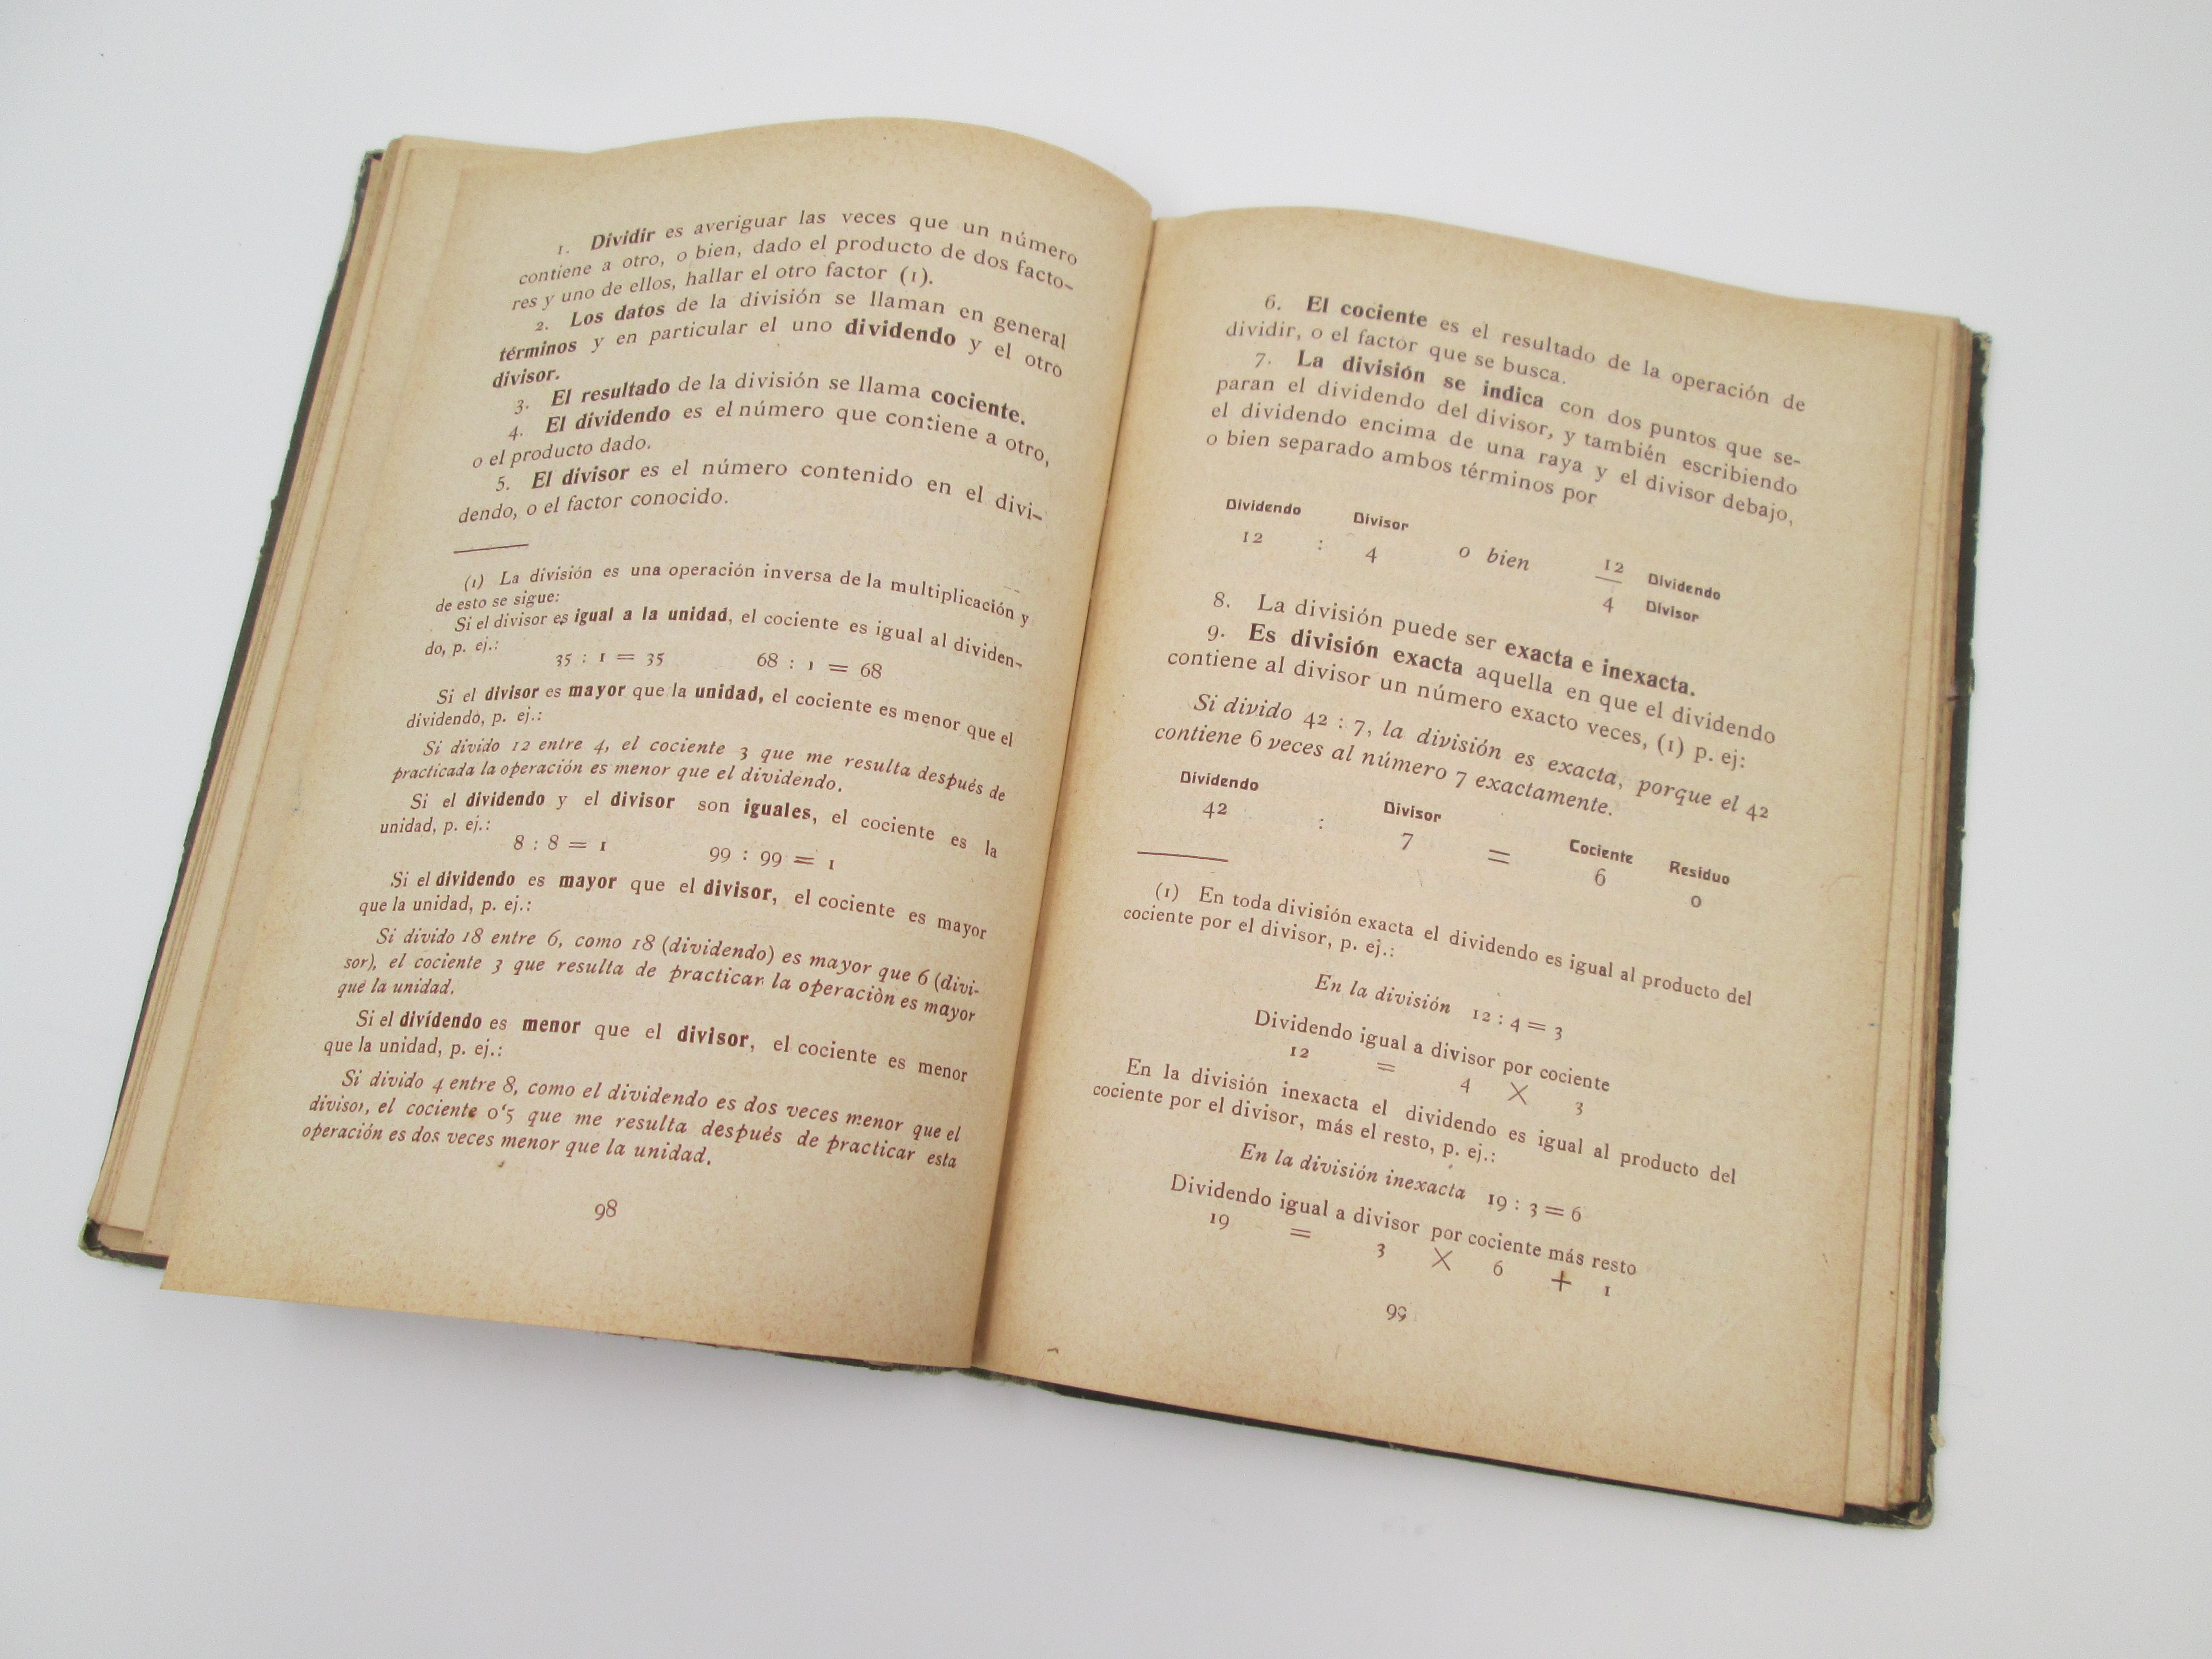 1. Dividir es averiguar las veces que un número
contiene a otro, o bien, dado el producto de dos facto-
res y uno de ellos, hallar el otro factor (1).
2. Los datos de la división se llaman en general
términos y en particular el uno dividendo y el otro
divisor.
3. El resultado de la división se llama cociente.
4. El dividendo es el número que contiene a otro,
o el producto dado.
5. El divisor es el número contenido en el divi-
dendo, o el factor conocido.
(1) La división es una operación inversa de la multiplicación y
de esto se sigue:
Si el divisor es igual a la unidad, el cociente es igual al dividen-
do, p. ej.:
35 : 1 = 35 68 : 1 = 68
Si el divisor es mayor que la unidad, el cociente es menor que el
dividendo, p. ej.:
Si divido 12 entre 4, el cociente 3 que me resulta después de
practicada la operación es menor que el dividendo.
Si el dividendo y el divisor son iguales, el cociente es la
unidad, p. ej.:
8 : 8 = 1 99 : 99 = 1
Si el dividendo es mayor que el divisor, el cociente es mayor
que la unidad, p. ej.:
Si divido 18 entre 6, como 18 (dividendo) es mayor que 6 (divi-
sor), el cociente 3 que resulta de practicar la operación es mayor
que la unidad.
Si el dividendo es menor que el divisor, el cociente es menor
que la unidad, p. ej.:
Si divido 4 entre 8, como el dividendo es dos veces menor que el
divisor, el cociente 0'5 que me resulta después de practicar esta
operación es dos veces menor que la unidad.
98
6. El cociente es el resultado de la operación de
dividir, o el factor que se busca.
7. La división se indica con dos puntos que se-
paran el dividendo del divisor, y también escribiendo
el dividendo encima de una raya y el divisor debajo,
o bien separado ambos términos por
Dividendo Divisor
12 : 4 o bien 12 Dividendo
4 Divisor
8. La división puede ser exacta e inexacta.
9. Es división exacta aquella en que el dividendo
contiene al divisor un número exacto veces, (1) p. ej:
Si divido 42 : 7, la división es exacta, porque el 42
contiene 6 veces al número 7 exactamente.
Dividendo Divisor Cociente Residuo
42 : 7 = 6 0
(1) En toda división exacta el dividendo es igual al producto del
cociente por el divisor, p. ej.:
En la división 12 : 4 = 3
Dividendo igual a divisor por cociente
12 = 4 × 3
En la división inexacta el dividendo es igual al producto del
cociente por el divisor, más el resto, p. ej.:
En la división inexacta 19 : 3 = 6
Dividendo igual a divisor por cociente más resto
19 = 3 × 6 + 1
99